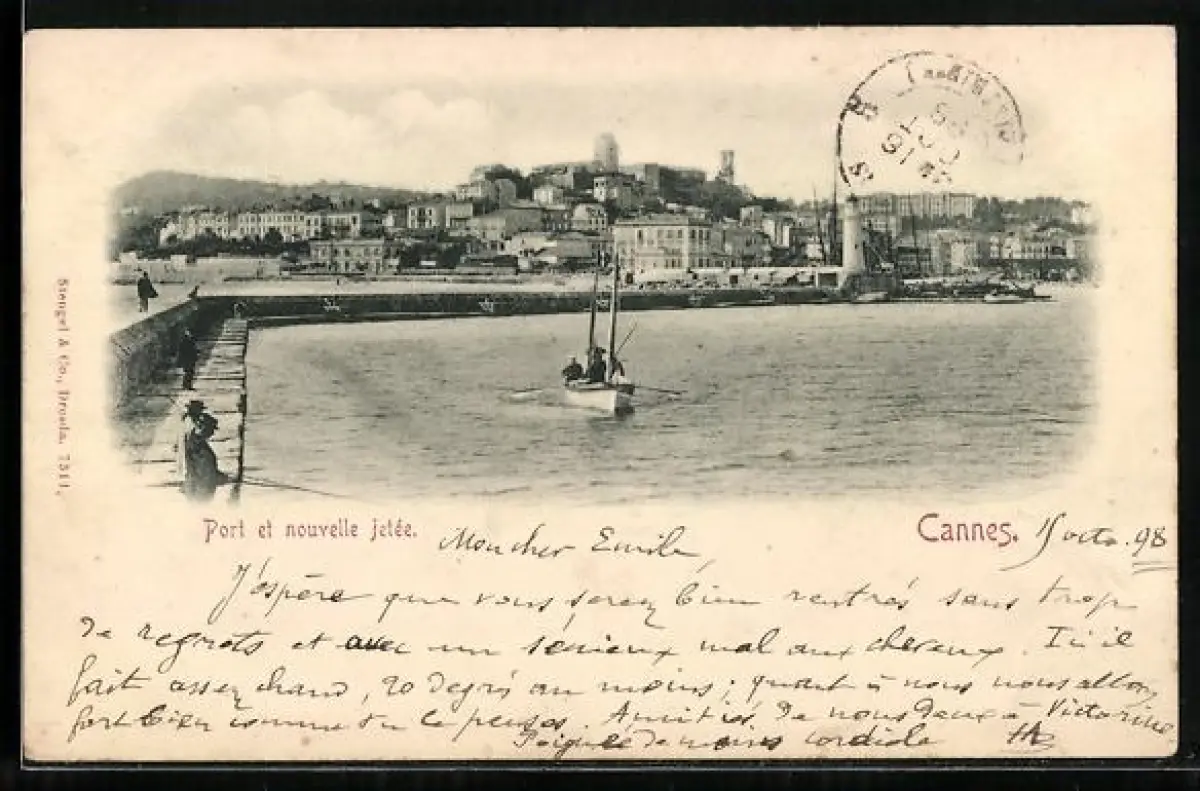 Stengel & Co., Dresda. 7511.
Port et nouvelle jetée.
Cannes.
15 octo. 98
Mon cher Emile
J'espère que vous serez bien rentrés sans trop
de regrets et avec un sérieux mal aux cheveux. Ici il
fait assez chaud, 20 degrés au moins; quant à nous nous allons
fort bien comme tu le penses. Amitiés de nous deux à Victorine
Poignée de mains cordiale